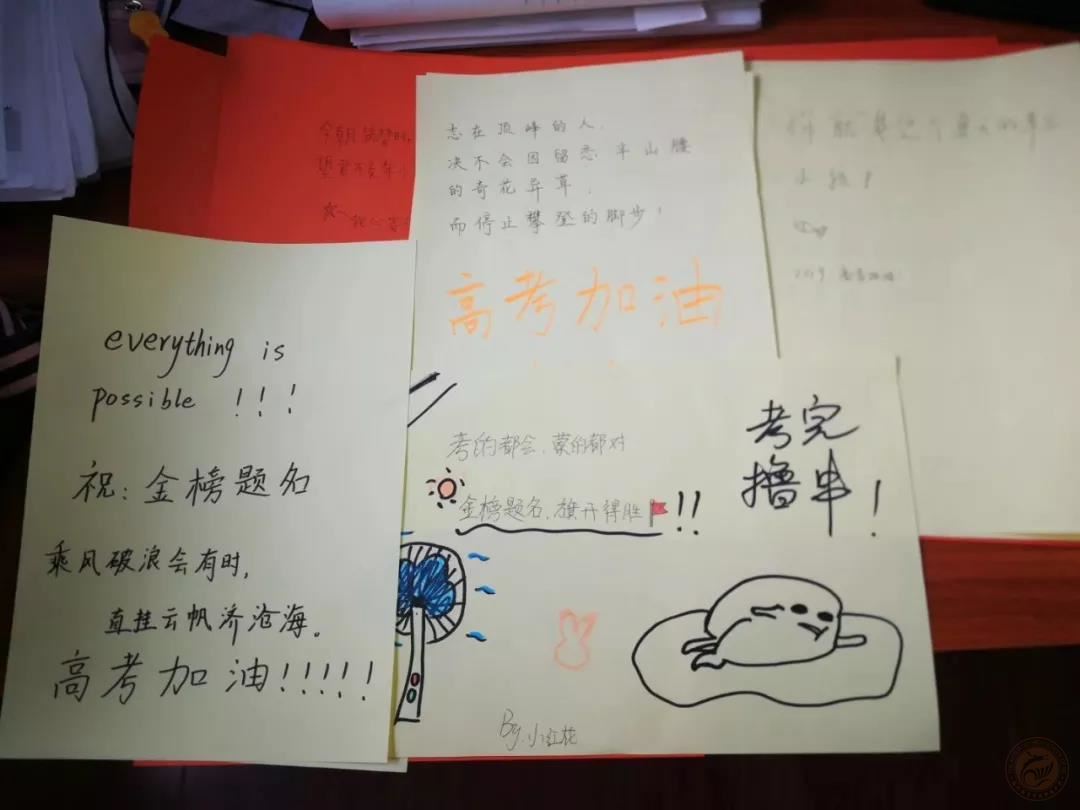 今朝
志在顶峰的人,
决不会因留恋半山腰
的奇花异草,
而停止攀登的脚步!
高考加油
小鹅!
2019 高考加油
everything is
possible !!!
祝:金榜题名
乘风破浪会有时,
直挂云帆济沧海。
高考加油!!!!!
考的都会,蒙的都对
金榜题名,旗开得胜!!
考完
撸串!
By.小红花